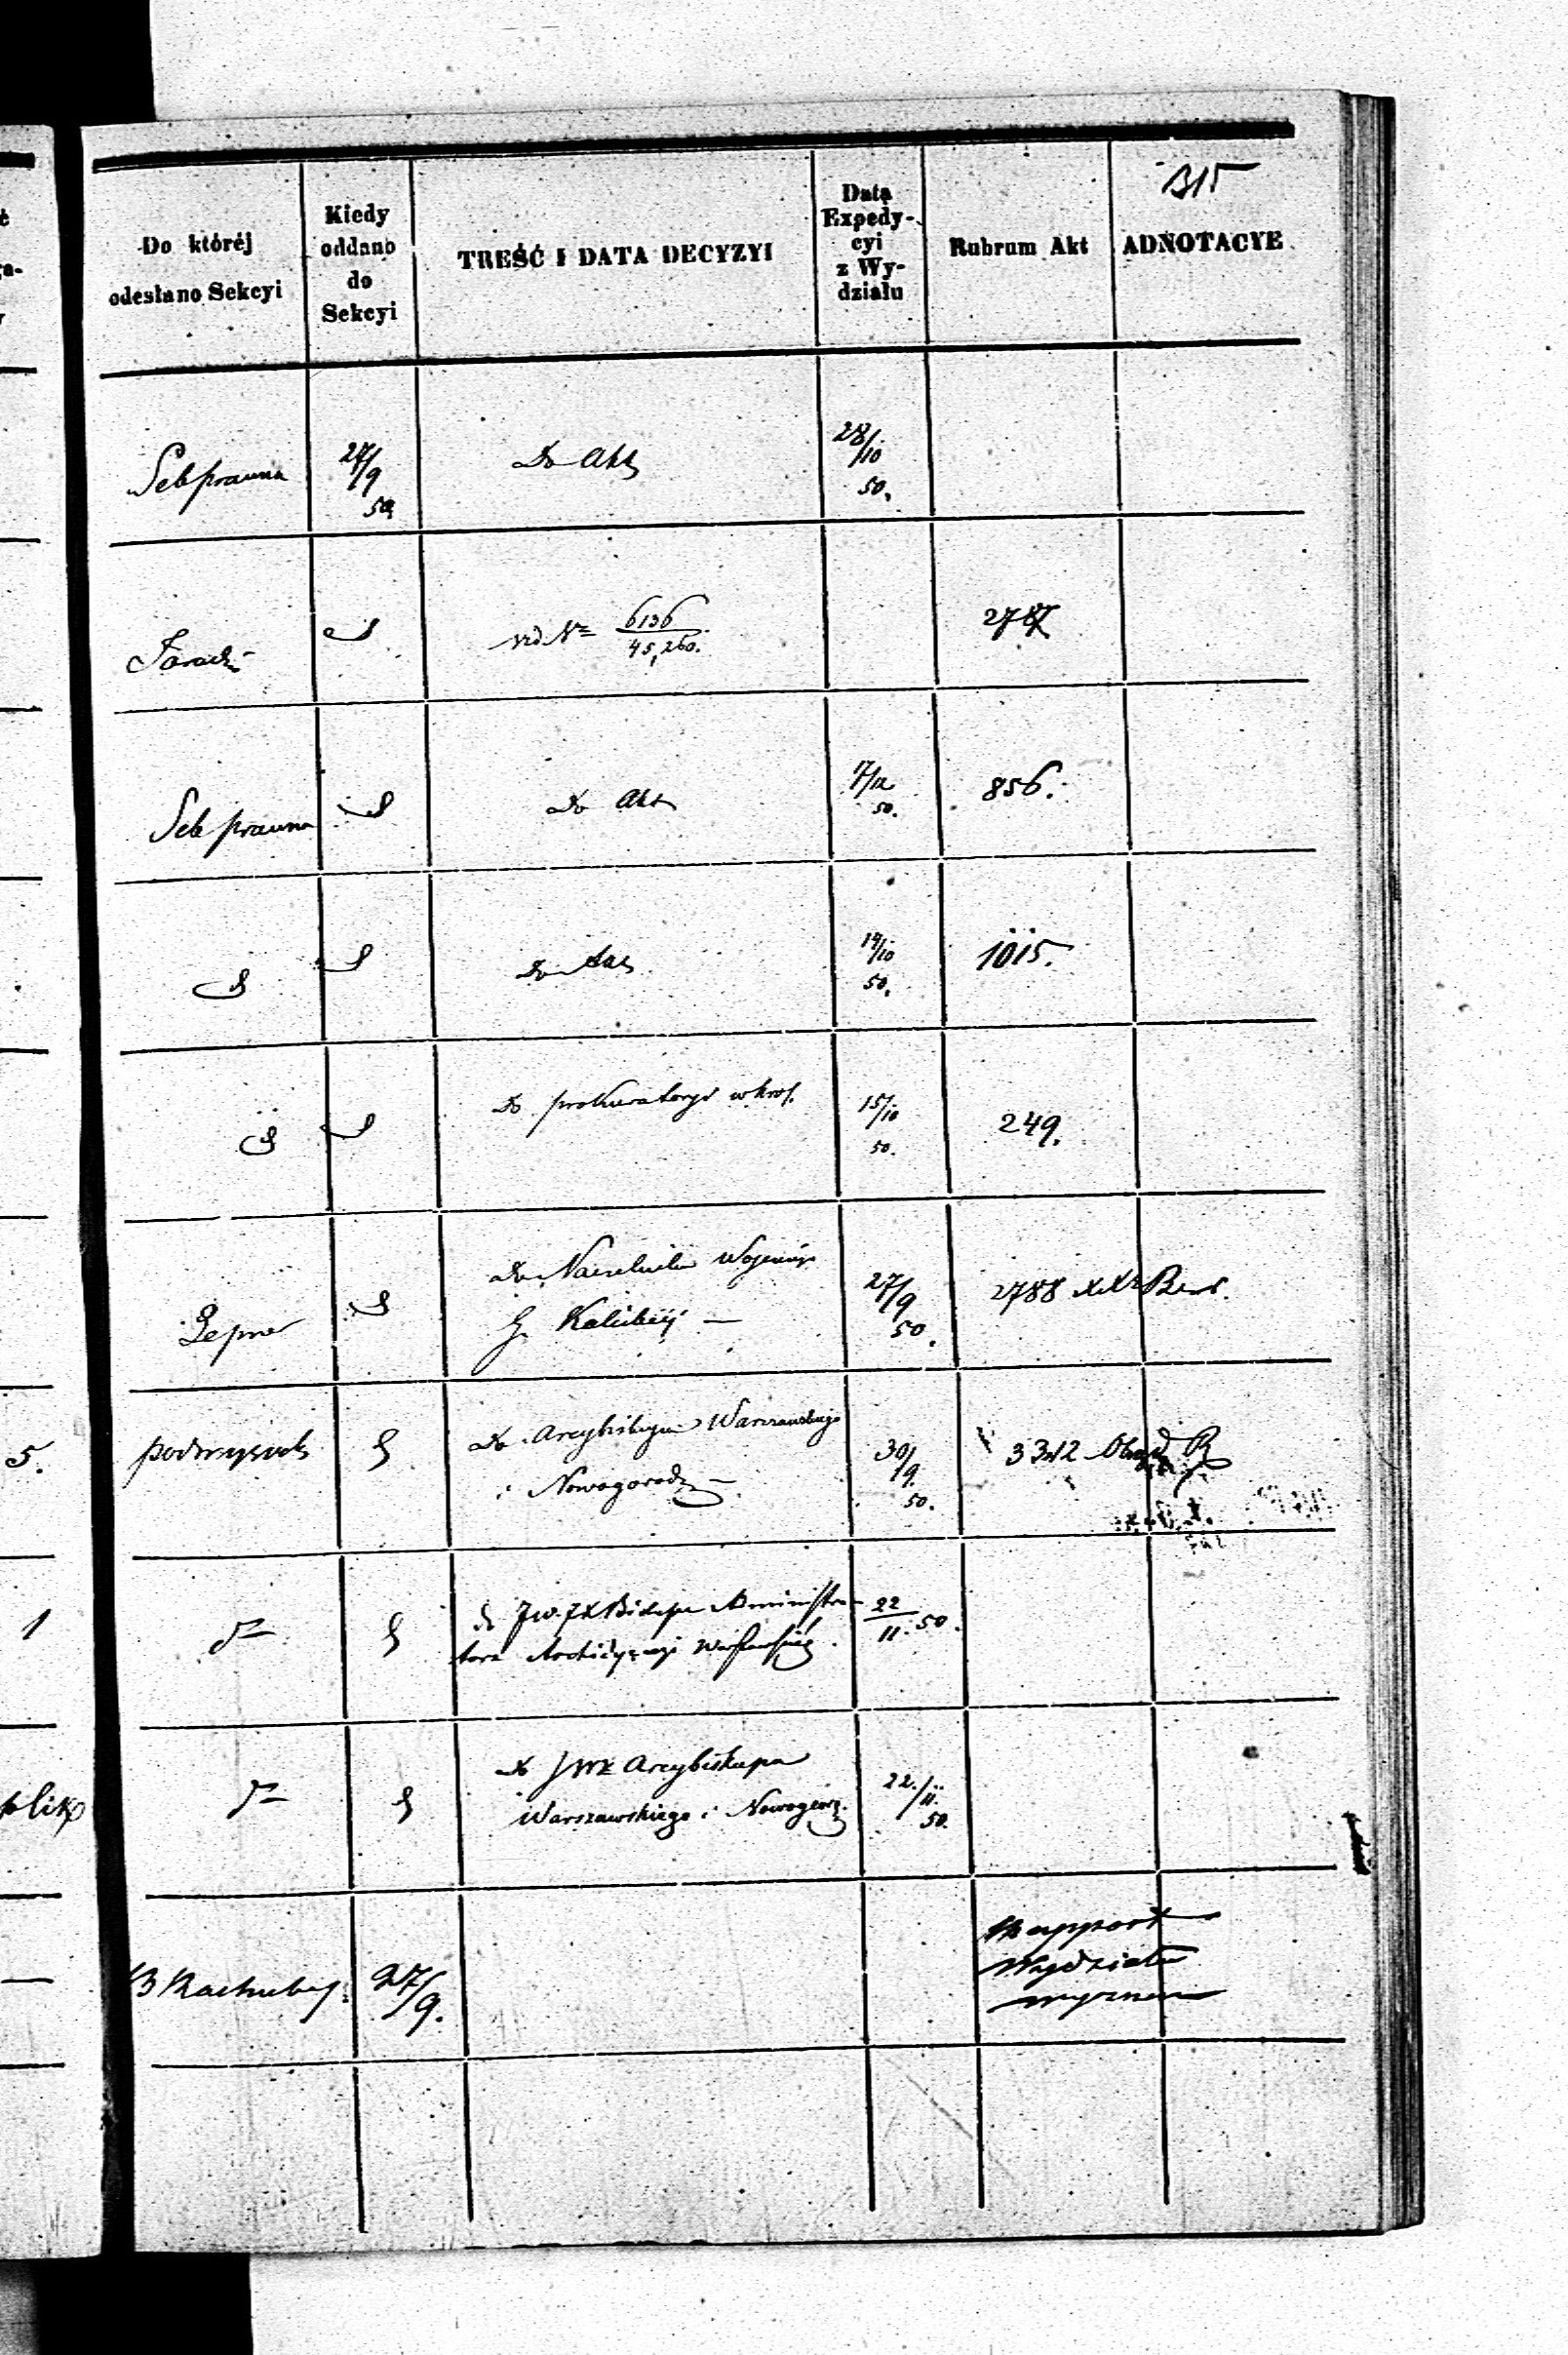 315
Do któréj
odesłano Sekcyi
Kiedy
oddano
do
Sekcyi
TREŚĆ I DATA DECYZYI
Data
Expedy-
cyi
z Wy-
działu
Rubrum Akt
ADNOTACYE
Sek prawna
27/9
50
Do Akt
28/10
50.
6136
45,260.
2787
Sek prawna
Do Akt
17/12
50.
856.
Do Akt
14/10
50.
1015.
Do prokuratoryi w Król.
15/10
50.
249.
Do Naczelnika Wojenn
G Kaliskiej —
27/9
50.
2788
5.
Do Arcybiskupa Warszawskiego
i Nowogrodz —
30/9
50.
3342
1
JW. JX Biskupa Administra-
tora Archidyecezyi Warszawskiej
22/11. 50.
Do JWX Arcybiskupa
Warszawskiego i Nowogeorg.
22./11.
50.
Rachuby
27/9.
Rapport
Wydziału
wyznań